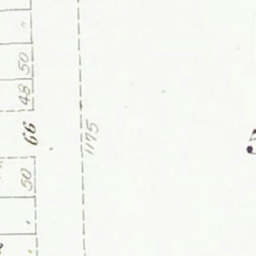 50
48
66
50
1175